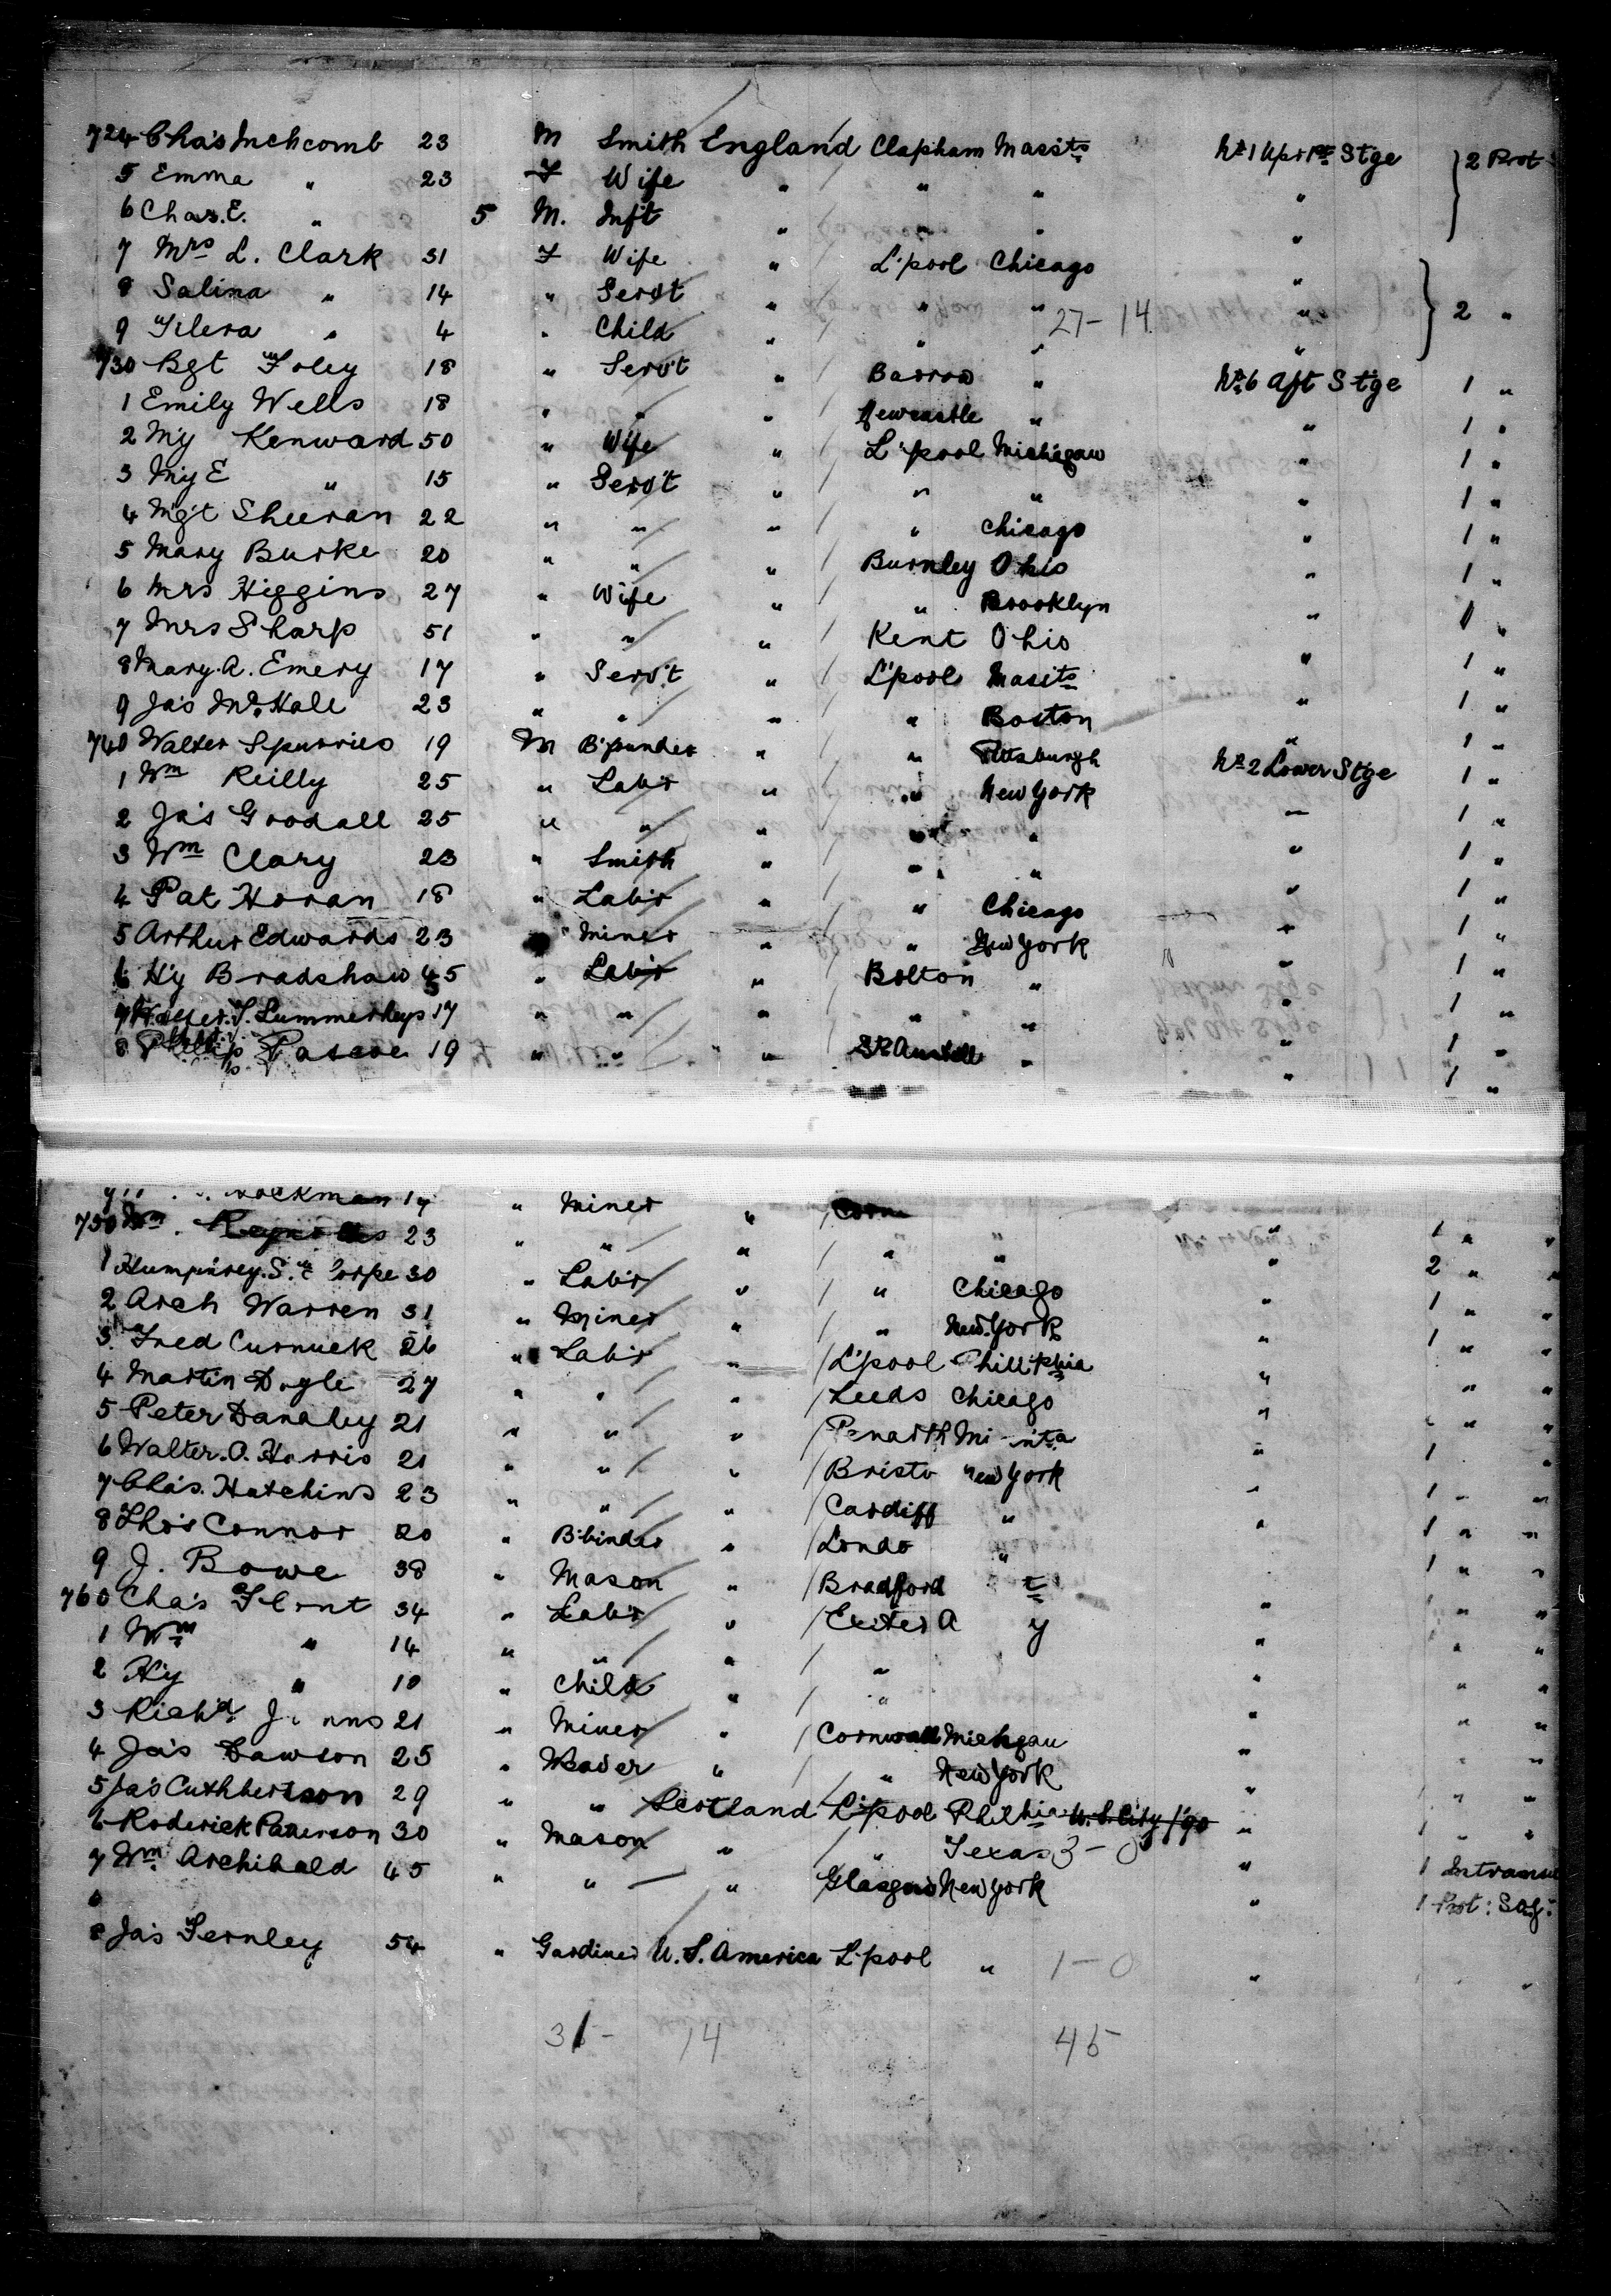 724 Cha's Inchcomb 23 M Smith England Clapham Massts No 1 Upr Stge 2 Prot
5 Emma " 23 F Wife " " " "
6 Chas. E. " 5 M. Inft " " " "
7 Mrs L. Clark 31 F Wife " L'pool Chicago "
8 Salina " 14 " Servt " " " " 2 "
9 " 4 " Child " " " 27-14 "
730 Bgt Foley 18 " Serv't " Barrow " No 6 Aft Stge 1 "
1 Emily Wells 18 " " " Newcastle " " 1 "
2 My Kenward 50 " Wife " L'pool Michigan " 1 "
3 My E " 15 " Serv't " " " " 1 "
4 Mgt Sheeran 22 " " " " Chicago " 1 "
5 Mary Burke 20 " " " Burnley Ohio " 1 "
6 Mrs Higgins 27 " Wife " " Brooklyn " 1 "
7 Mrs Sharp 51 " " " Kent Ohio " 1 "
8 Mary. A. Emery 17 " Serv't " L'pool Massts " 1 "
9 Ja's Hale 23 " " " " Boston " 1 "
740 Walter Spurries 19 M " " Pittsburgh No 2 Lower Stge 1 "
1 Wm Reilly 25 " Lab'r " " New York " 1 "
2 Ja's Goodall 25 " " " " " " 1 "
3 Wm Clary 23 " Smith " " " " 1 "
4 Pat Horan 18 " Lab'r " " Chicago " 1 "
5 Arthur Edwards 23 " Miner " " New York " 1 "
6 H'y Bradshaw 45 " Lab'r " Bolton " " 1 "
7 Summerheys 17 " " " " " " 1 "
8 Philip Pascoe 19 " " " St Austell " " 1 "
17 " Miner " Corn " 1 " "
750 Wm. Reynolds 23 " " " " " " 2 " "
1 Humphrey. 30 " Lab'r " " Chicago " 1 " "
2 Arch Warren 31 " Miner " " New York " 1 " "
3 Fred Curnuck 26 " Lab'r " L'pool Phill'phia " " "
4 Martin Doyle 27 " " " Leeds Chicago " " "
5 Peter Danahy 21 " " " Penarth " 1 "
6 Walter. O. Harris 21 " " " New York " 1 " "
7 Cha's. Hutchins 23 " " " Cardiff " " 1 " "
8 Tho's Connor 20 " B'binder " " 1 " "
9 J. Bowe 38 " Mason " Bradford " " "
760 Cha's 34 " Lab'r " Exeter " " "
1 Wm " 14 " " " " " " "
2 H'y " 10 " Child " " " " "
3 Rich'd 21 " Miner " Cornwall Michgan " " "
4 Ja's Dawson 25 " " " New York " " "
5 Ja's Cuthbertson 29 " " Scotland L'pool Philhia " 1 " "
6 Roderick Paterson 30 " Mason " " Texas 3-0 " 1
7 Wm Archibald 45 " " " Glasgow New York " 1 Prot:
8 Ja's Fernley 54 " Gardiner U.S. America L'pool " 1-0 " "
31- 14 45